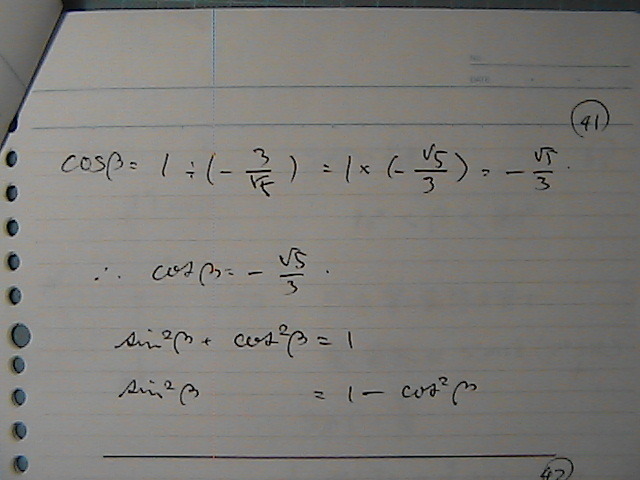 NO.
DATE
(41)
cosβ = 1 ÷ (- 3/√5) = 1 × (- √5/3) = - √5/3.
∴ cosβ = - √5/3.
sin²β + cos²β = 1
sin²β = 1 - cos²β
(42)